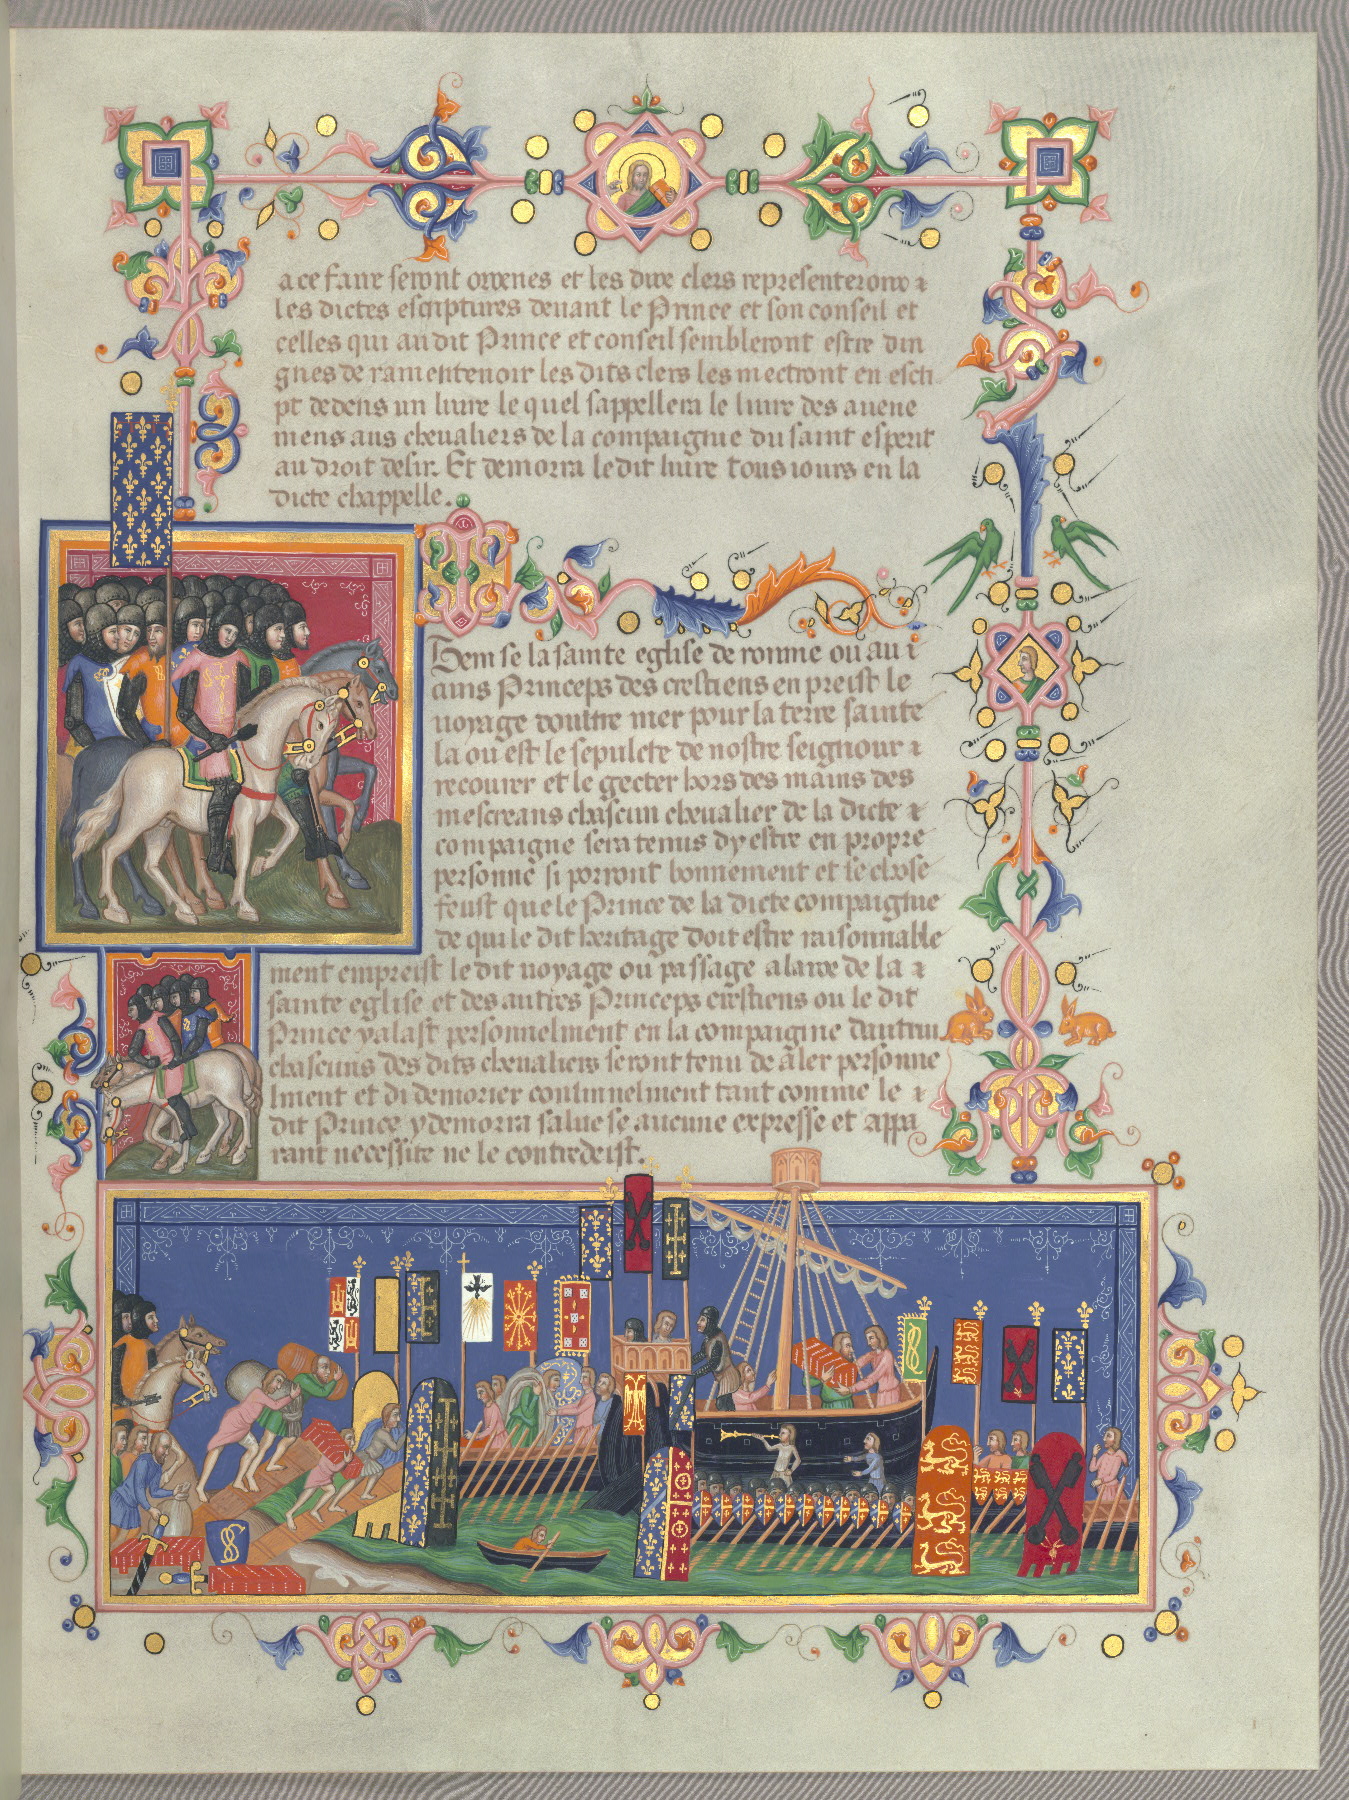 a ce faire seront ordenes et les dire clers representeront &
les dictes escriptures deuant le Prince et son conseil et
celles qui au dit Prince et conseil sembleront estre din
gnes de ramentenoir les dits clers les mectront en escri
pt dedens un liure le quel sappellera le liure des auene
mens aus cheualiers de la compaignie du saint esperit
au droit desir. Et demorra le dit liure tous iours en la
dicte chappelle.
Item se la sainte eglise de romme ou au &
cuns Princeps des crestiens enpreist le
uoyage doultre mer pour la terre sainte
la ou est le sepulcre de nostre seignour &
recourer et le gecter hors des mains des
mescreans chascun cheualier de la dicte &
compaigne sera tenus dy estre en propre
personne si porront bonnement et se chose
feust que le Prince de la dicte compaignie
de qui le dit heritage doit estre raisonnable
ment empreist le dit uoyage ou passage a laide de la &
sainte eglise et des autres Princeps crestiens ou le dit
Prince y alast personnelment en la compaignie dautrui
chascuns des dits cheualiers seront tenu de aler personne
lment et di demorer continuelment tant comme le &
dit Prince y demorra salue se aucune expresse et appa
rant necessite ne le contredeist.